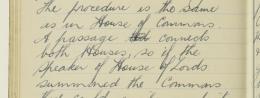 The procedure is the same
as in House of Commons.
A passage connects
both Houses, so if the
speaker of House of Lords
summoned the Commons